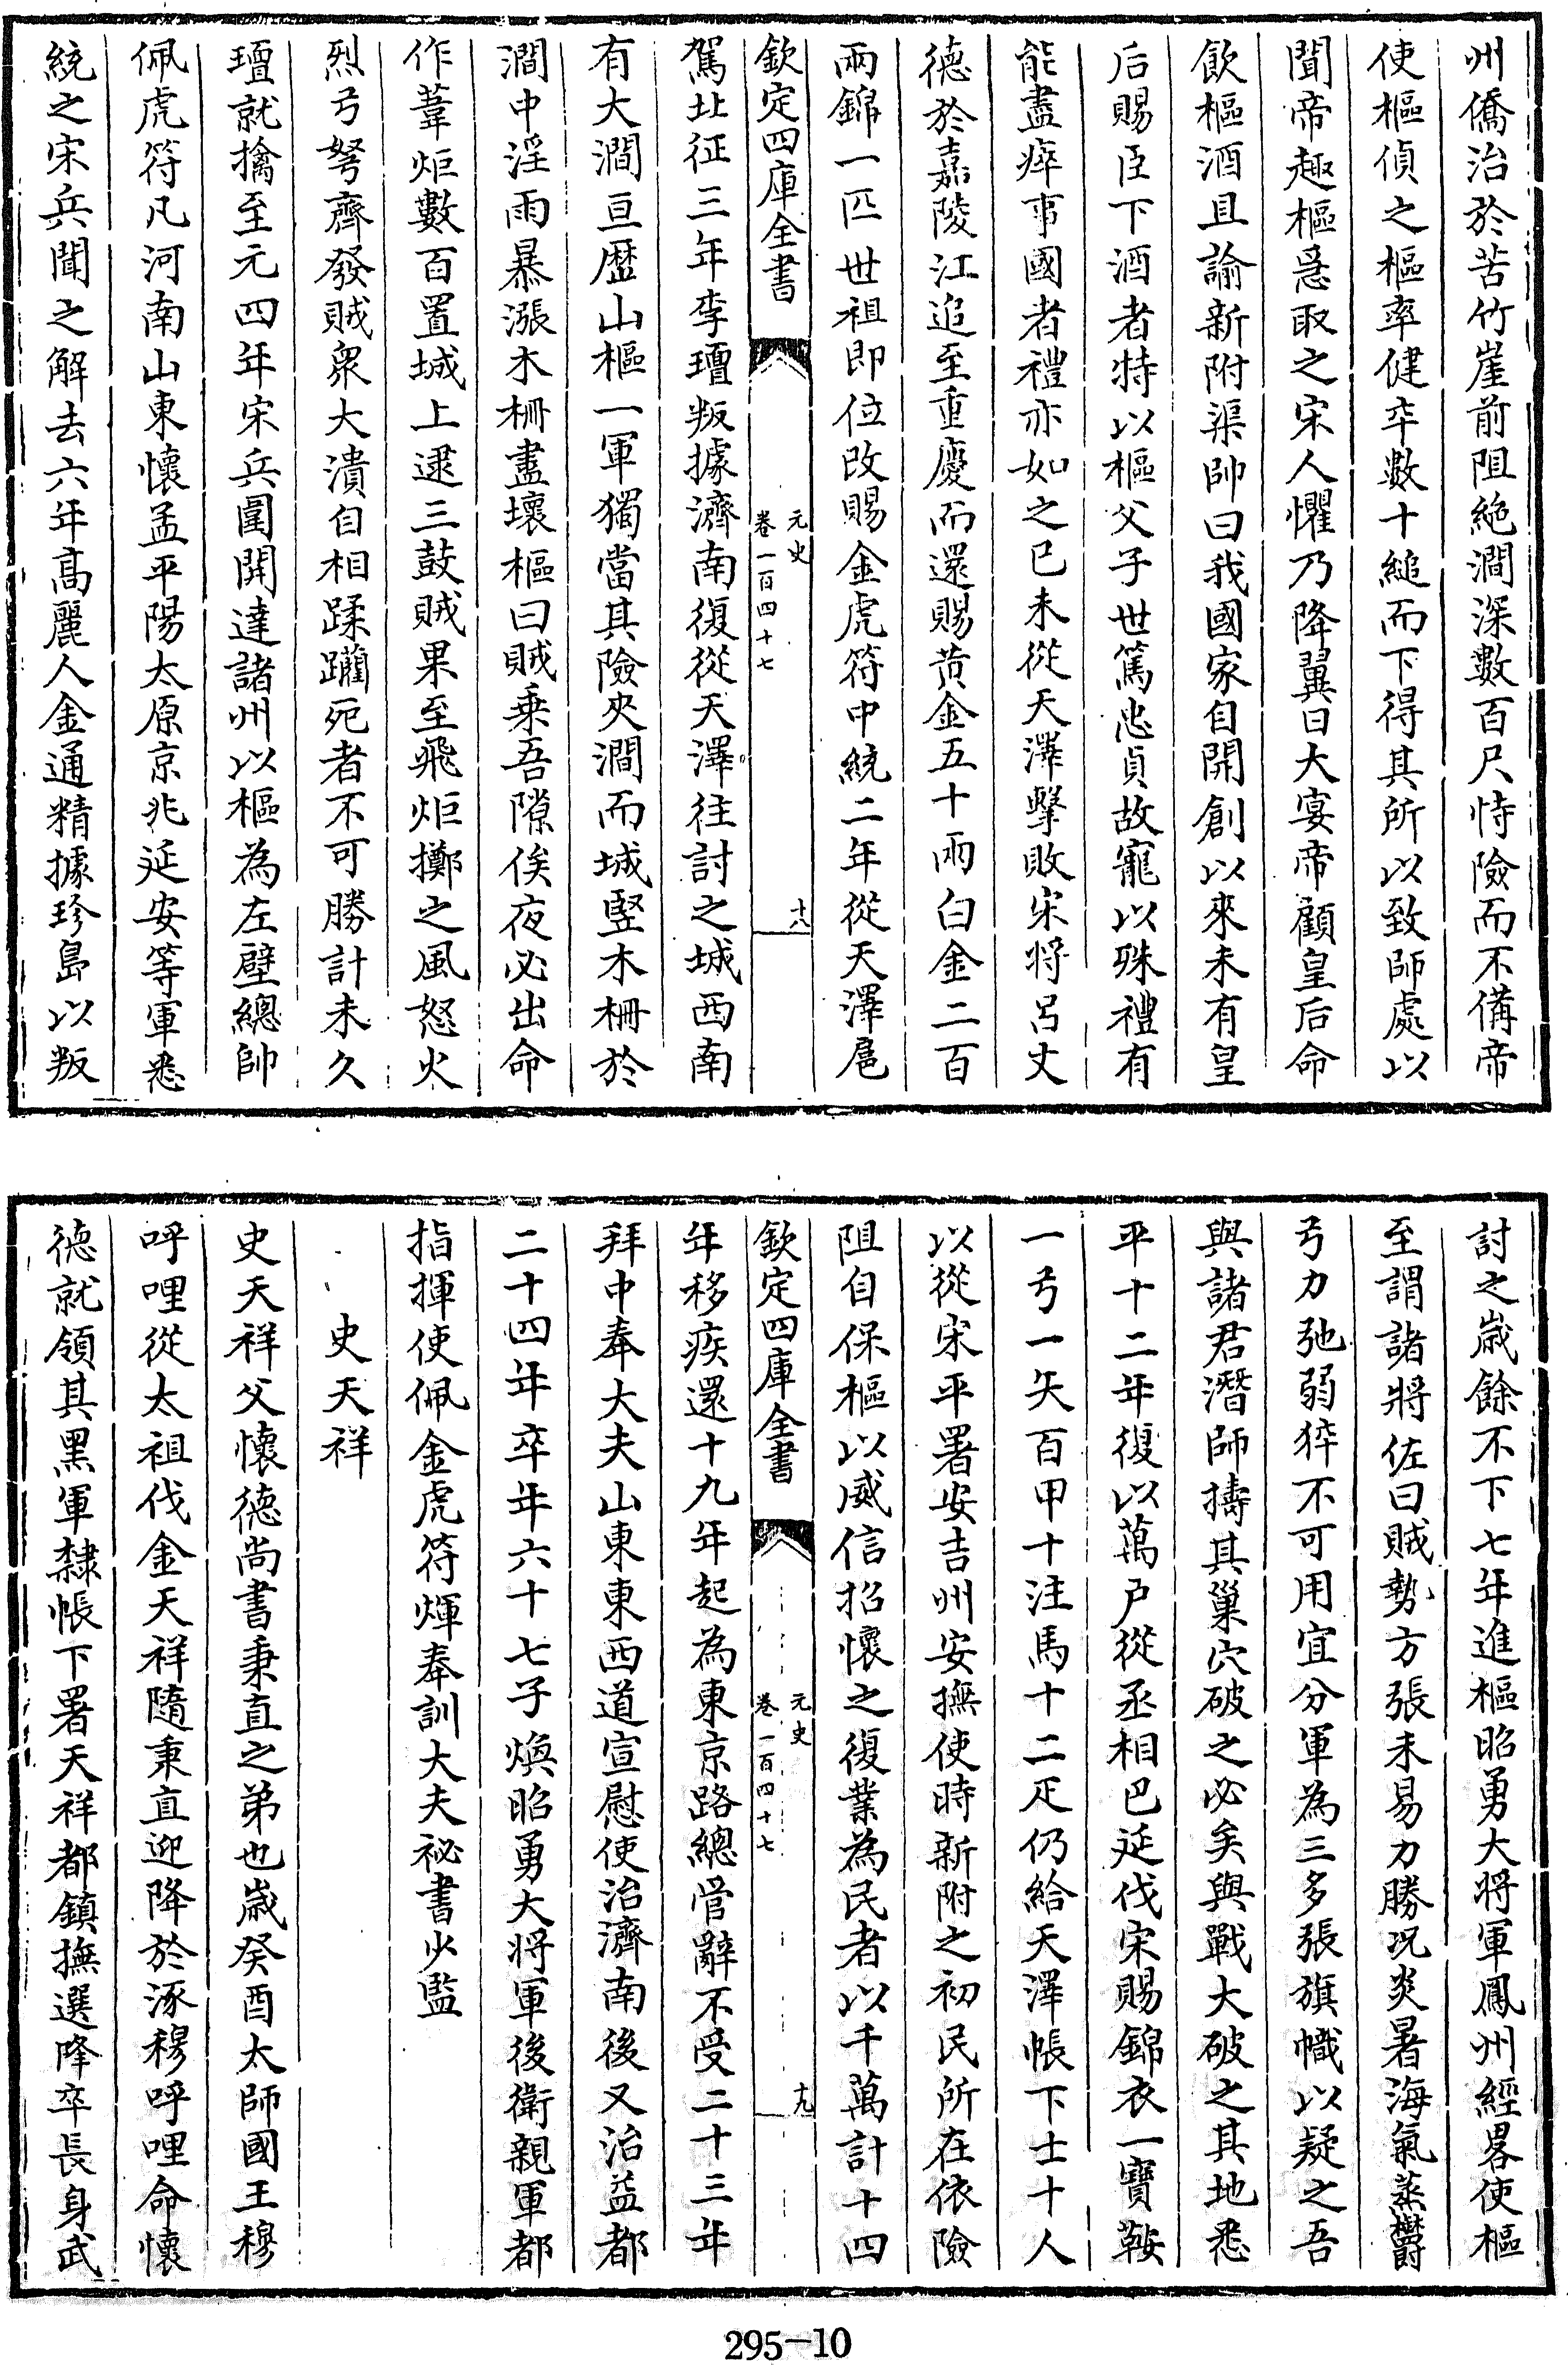 州僑治於苦竹崖前阻絶澗深數百尺恃險而不備帝
使樞偵之樞率健卒數十縋而下得其所以致師處以
聞帝趣樞急取之宋人懼乃降翼日大宴帝顧皇后命
飲樞酒且諭新附渠帥曰我國家自開創以來未有皇
后賜臣下酒者特以樞父子世篤忠貞故寵以殊禮有
能盡瘁事國者禮亦如之已未從天澤擊敗宋將呂文
德於嘉陵江追至重慶而還賜黄金五十兩白金二百
兩錦一匹世祖即位改賜金虎符中統二年從天澤扈
欽定四庫全書
元史
卷一百四十七
十八
駕北征三年李璮叛據濟南復從天澤往討之城西南
有大澗亘歴山樞一軍獨當其險夾澗而城竪木柵於
澗中淫雨暴漲木柵盡壞樞曰賊乗吾隙俟夜必出命
作葦炬數百置城上逮三鼓賊果至飛炬擲之風怒火
烈弓弩齊發賊衆大潰自相蹂躪死者不可勝計未久
璮就擒至元四年宋兵圍開達諸州以樞為左壁總帥
佩虎符凡河南山東懷孟平陽太原京兆延安等軍悉
統之宋兵聞之解去六年髙麗人金通精據珍島以叛
討之歳餘不下七年進樞昭勇大將軍鳳州經畧使樞
至謂諸將佐曰賊勢方張未易力勝况炎暑海氣蒸欝
弓力弛弱猝不可用宜分軍為三多張旗幟以疑之吾
與諸君潛師擣其巢穴破之必矣與戰大破之其地悉
平十二年復以萬户從丞相巴延伐宋賜錦衣一寶鞍
一弓一矢百甲十注馬十二疋仍給天澤帳下士十人
以從宋平署安吉州安撫使時新附之初民所在依險
阻自保樞以威信招懷之復業為民者以千萬計十四
欽定四庫全書
元史
卷一百四十七
十九
年移疾還十九年起為東京路總管辭不受二十三年
拜中奉大夫山東東西道宣慰使治濟南後又治益都
二十四年卒年六十七子煥昭勇大將軍後衛親軍都
指揮使佩金虎符煇奉訓大夫祕書少監
史天祥
史天祥父懷德尚書秉直之弟也歳癸酉太師國王穆
呼哩從太祖伐金天祥隨秉直迎降於涿穆呼哩命懷
德就領其黑軍隸帳下署天祥都鎮撫選降卒長身武
295-10